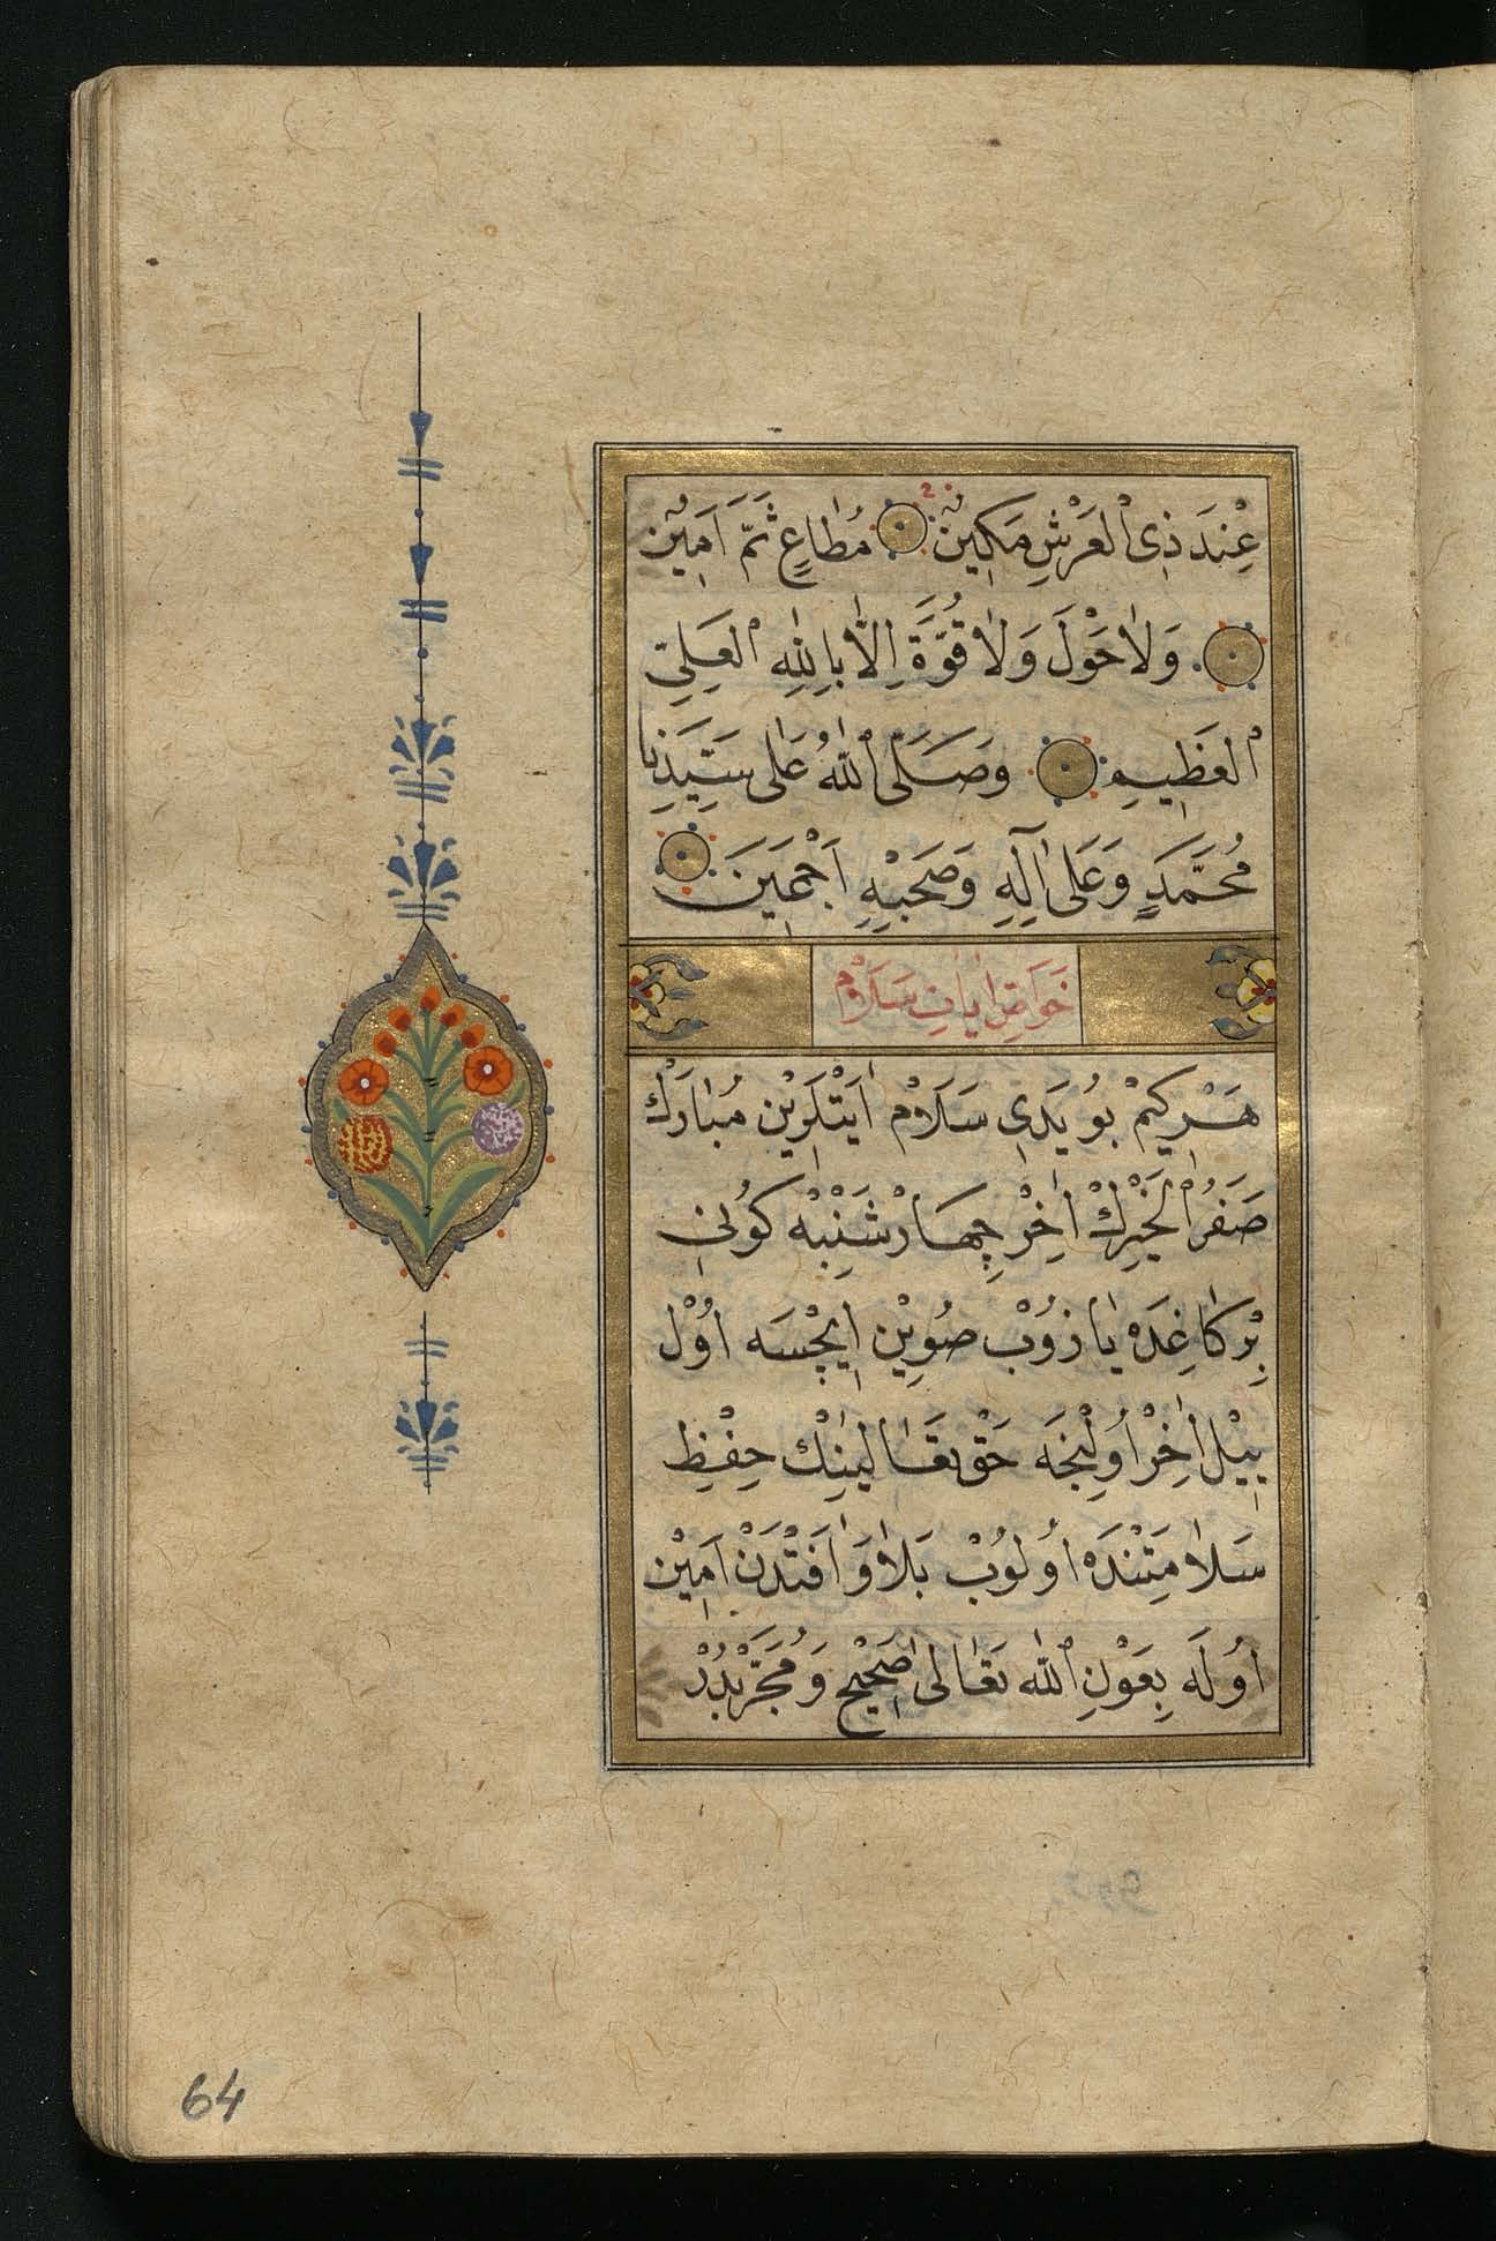 عِنْدَ ذِى الْعَرْشِ مَكِينٍ مُطَاعٍ ثَمَّ اَمِينٍ
وَلَا حَوْلَ وَلَا قُوَّةَ اِلَّا بِاللهِ الْعَلِيِّ
الْعَظِيمِ وَصَلَّى اللهُ عَلٰى سَيِّدِنَا
مُحَمَّدٍ وَعَلٰى اٰلِهِ وَصَحْبِهِ اَجْمَعِينَ
خَوَاصِ اٰيَاتِ سَلَامْ
هَرْ كِمْ بُو يَدِى سَلَامْ اٰيَتْلَرِيْن مُبَارَكْ
صَفَرُ الْخَيْرِكْ اٰخِرْ چِهَارْشَنْبَهْ كُونِى
بِرْ كَاغِدَهْ يَازُوبْ صُويِنْ اِيچْسَه اوُلْ
يِيلْ اٰخِرْ اوُلِنْجَه حَقْ تَعَالَينِكْ حِفْظِ
سَلَامَتِنْدَهْ اوُلُوبْ بَلَا وَ اٰفَتْدَنْ اَمِيْن
اوُلَه بِعَوْنِ اللهِ تَعَالٰى صَحِيْح وَ مُجَرَّبْدُرْ
64